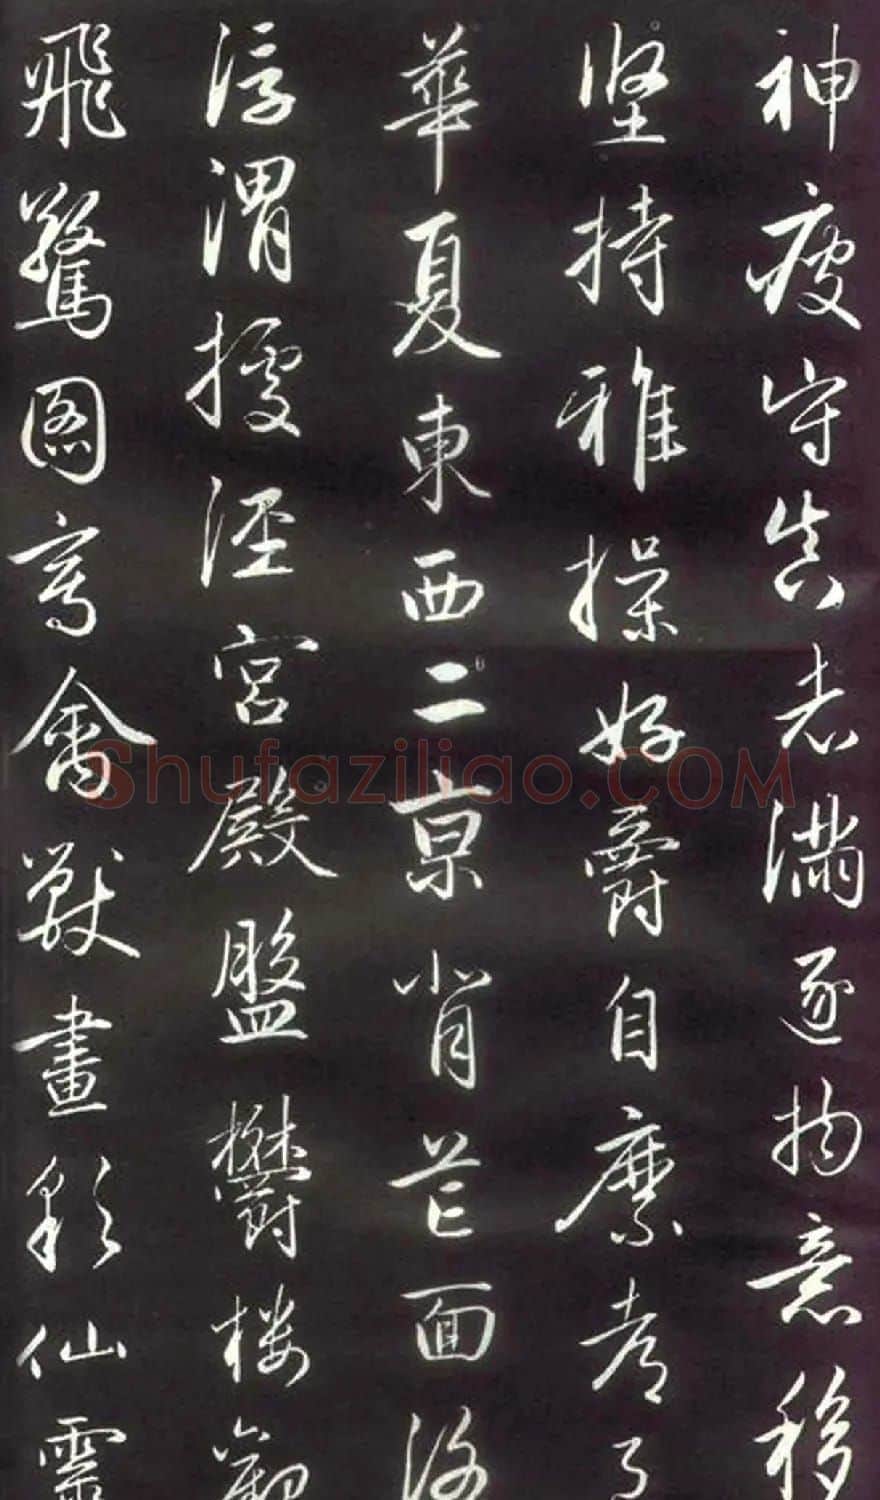 神疲守真志滿逐物意移
堅持雅操好爵自縻都
華夏東西二京背芒面洛
浮渭據涇宮殿盤鬱樓觀
飛驚圖寫禽獸畫彩仙靈
Shufaziliao.COM